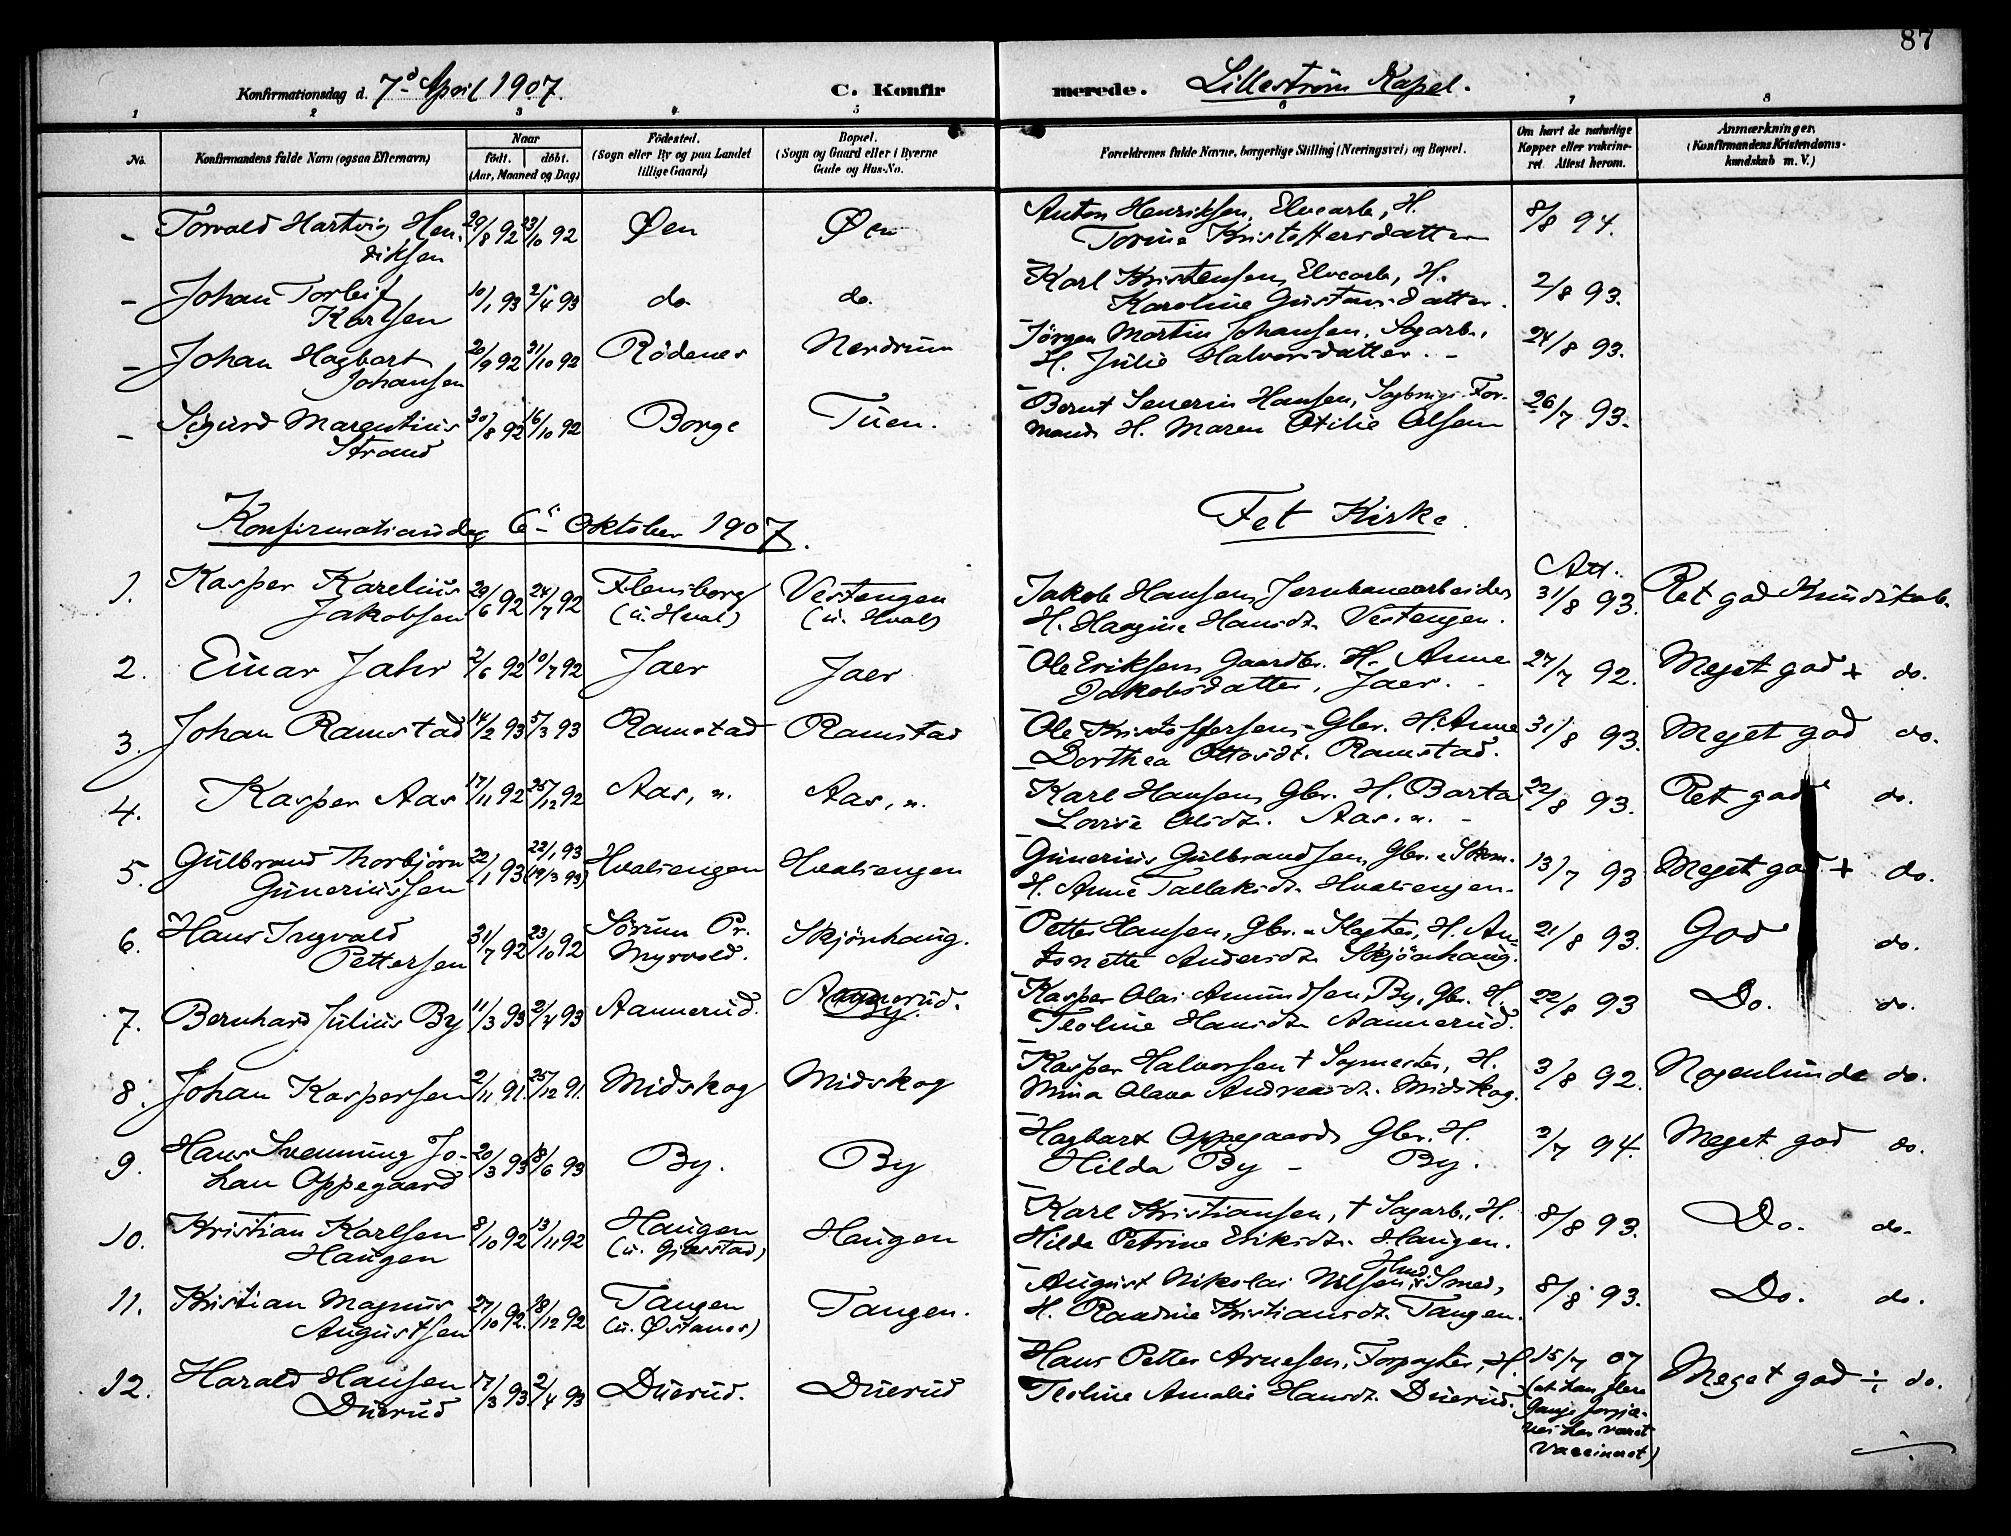 87
Konfirmationsdag d. 7d April 1907. C. Konfirmerede. Lilleström Kapel.
1 2 3 4 5 6 7 8
No. Konfirmandens fulde Navn (ogsaa Efternavn) Naar födt. döbt. (Aar, Maaned og Dag) Födested. (Sogn eller By og paa Landet tillige Gaard) Bopæl. (Sogn og Gaard eller i Byerne Gade og Hus-No. Forældrenes fulde Navne, borgerlige Stilling (Næringsvei) og Bopæl. Om havt de naturlige Kopper eller vakcineret. Attest herom. Anmærkninger. (Konfirmandens Kristendomskundskab m. V.)
- Torvald Hartvig Hendiksen 29/8 92 23/10 92 Øen Øen Anton Henriksen, Elvearb., H. Torine Kristoffersdatter 8/8 94.
- Johan Torleif Karlsen 10/1 93 2/4 93 do do. Karl Kristensen, Elvearb, H. Karoline Gustavsdatter. 2/8 93.
- Johan Hagbart Johansen 20/9 92 31/10 92 Rödenes Nerdrum Jörgen Martin Johansen, Sagarb., H. Julie Halvorsdatter. - 24/8 93.
- Sigurd Marentius Strand 30/8 92 16/10 92 Borge Tuen. Bernt Severin Hansen, Sagbrugs-Formand H. Maren Otilie Olsen 26/7 93.
Konfirmationsdag 6te Oktober 1907. Fet Kirke.
Att.
1. Kasper Karelius Jakobsen 29/6 92 24/7 92 Flensborg (u. Hval) Vestengen (u. Hval) Jakob Hansen, Jernbanearbeider H. Haagine Hansdt. Vestengen. 31/8 93. Ret god Kundskab.
2. Einar Jahr 2/6 92 10/7 92 Jaer Jaer Ole Eriksen, Gaardbr. H. Anne Jakobsdatter, Jaer. - 27/7 92. Meget god + do.
3. Johan Ramstad 14/2 93 5/3 93 Ramstad Ramstad Ole Kristoffersen, Gbr. H. Anne Dorthea Ottosdt. Ramstad. 31/8 93. Meget god do.
4. Kasper Aas 17/11 92 25/12 92 Aas, n. Aas, n. Karl Hansen, Gbr. H. Barta Lovise Olsdt. Aas. n. - 22/8 93. Ret god do.
5. Gulbrand Thorbjörn Guneriussen 22/1 93 22/1 93 (19/3 93) Hvalsengen Hvalsengen Gunerius Gulbrandsen, Gbr. & Skom. H. Anne Tallaksdt. Hvalsengen. 13/7 93 Meget god + do.
6. Hans Ingvald Pettersen 31/7 92 23/10 92 Sörum Pr. Myrvold. Skjönhaug. Petter Hansen, Gbr. & Slagter, H. Antonette Andersdt. Skjönhaug. 21/8 93. God do.
7. Bernhard Julius By 11/3 93 2/4 93 Aannerud. Aannerud. By. Kasper Olai Amundsen By, Gbr. H. Teoline Hansdt. Aannerud. 22/8 93 Do. do.
8. Johan Kaspersen 2/11 91. 25/12 91. Midskog Midskog Kasper Halvorsen † Sagmester, H. Mina Olava Andreasdt. Midskog. 3/8 92. Nogenlunde do.
9. Hans Svenning Johan Oppegaard 20/3 93 18/6 93 By. By Hagbart Oppegaard, Gbr. H. Hilda By - By. 3/7 94. Meget god do.
10. Kristian Karlsen Haugen 8/10 92 13/11 92 Haugen (u. Gjerstad) Haugen Karl Kristiansen, † Sagarb., H. Hilda Petrine Eriksdt. Haugen. 8/8 93. Do. do.
11. Kristian Magnus Augustsen 27/10 92. 18/12 92 Tangen (u. Østanes) Tangen. August Nikolai Nilsen, Smed, H. Raadine Kristiansdt. Tangen. 8/8 93. Do. do.
12. Harald Hansen Duerud 17/3 93 2/4 93 Duerud. Duerud Hans Petter Arnesen, Forpagter, H. Teoline Amalie Hansdt. Duerud. 15/7 07 (at han flere Gange forgjæves har været vaccineret) Meget god ÷ do.